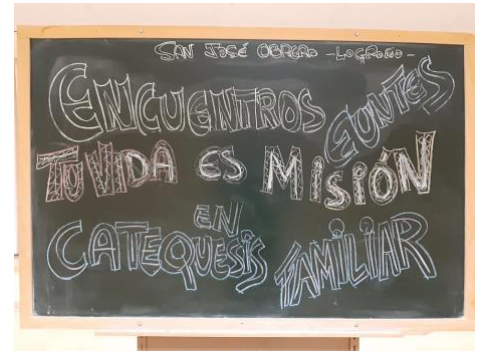 SAN JOSÉ OBRERO - LOGROÑO -
ENCUENTROS EUNTES
TU VIDA ES MISIÓN
EN
CATEQUESIS FAMILIAR